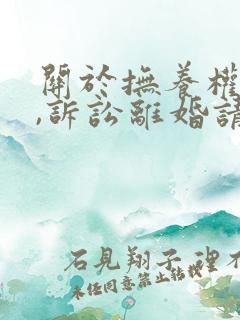 關於撫養權
,訴訟離婚請
石見翔子 裡不
未经同意禁止转载